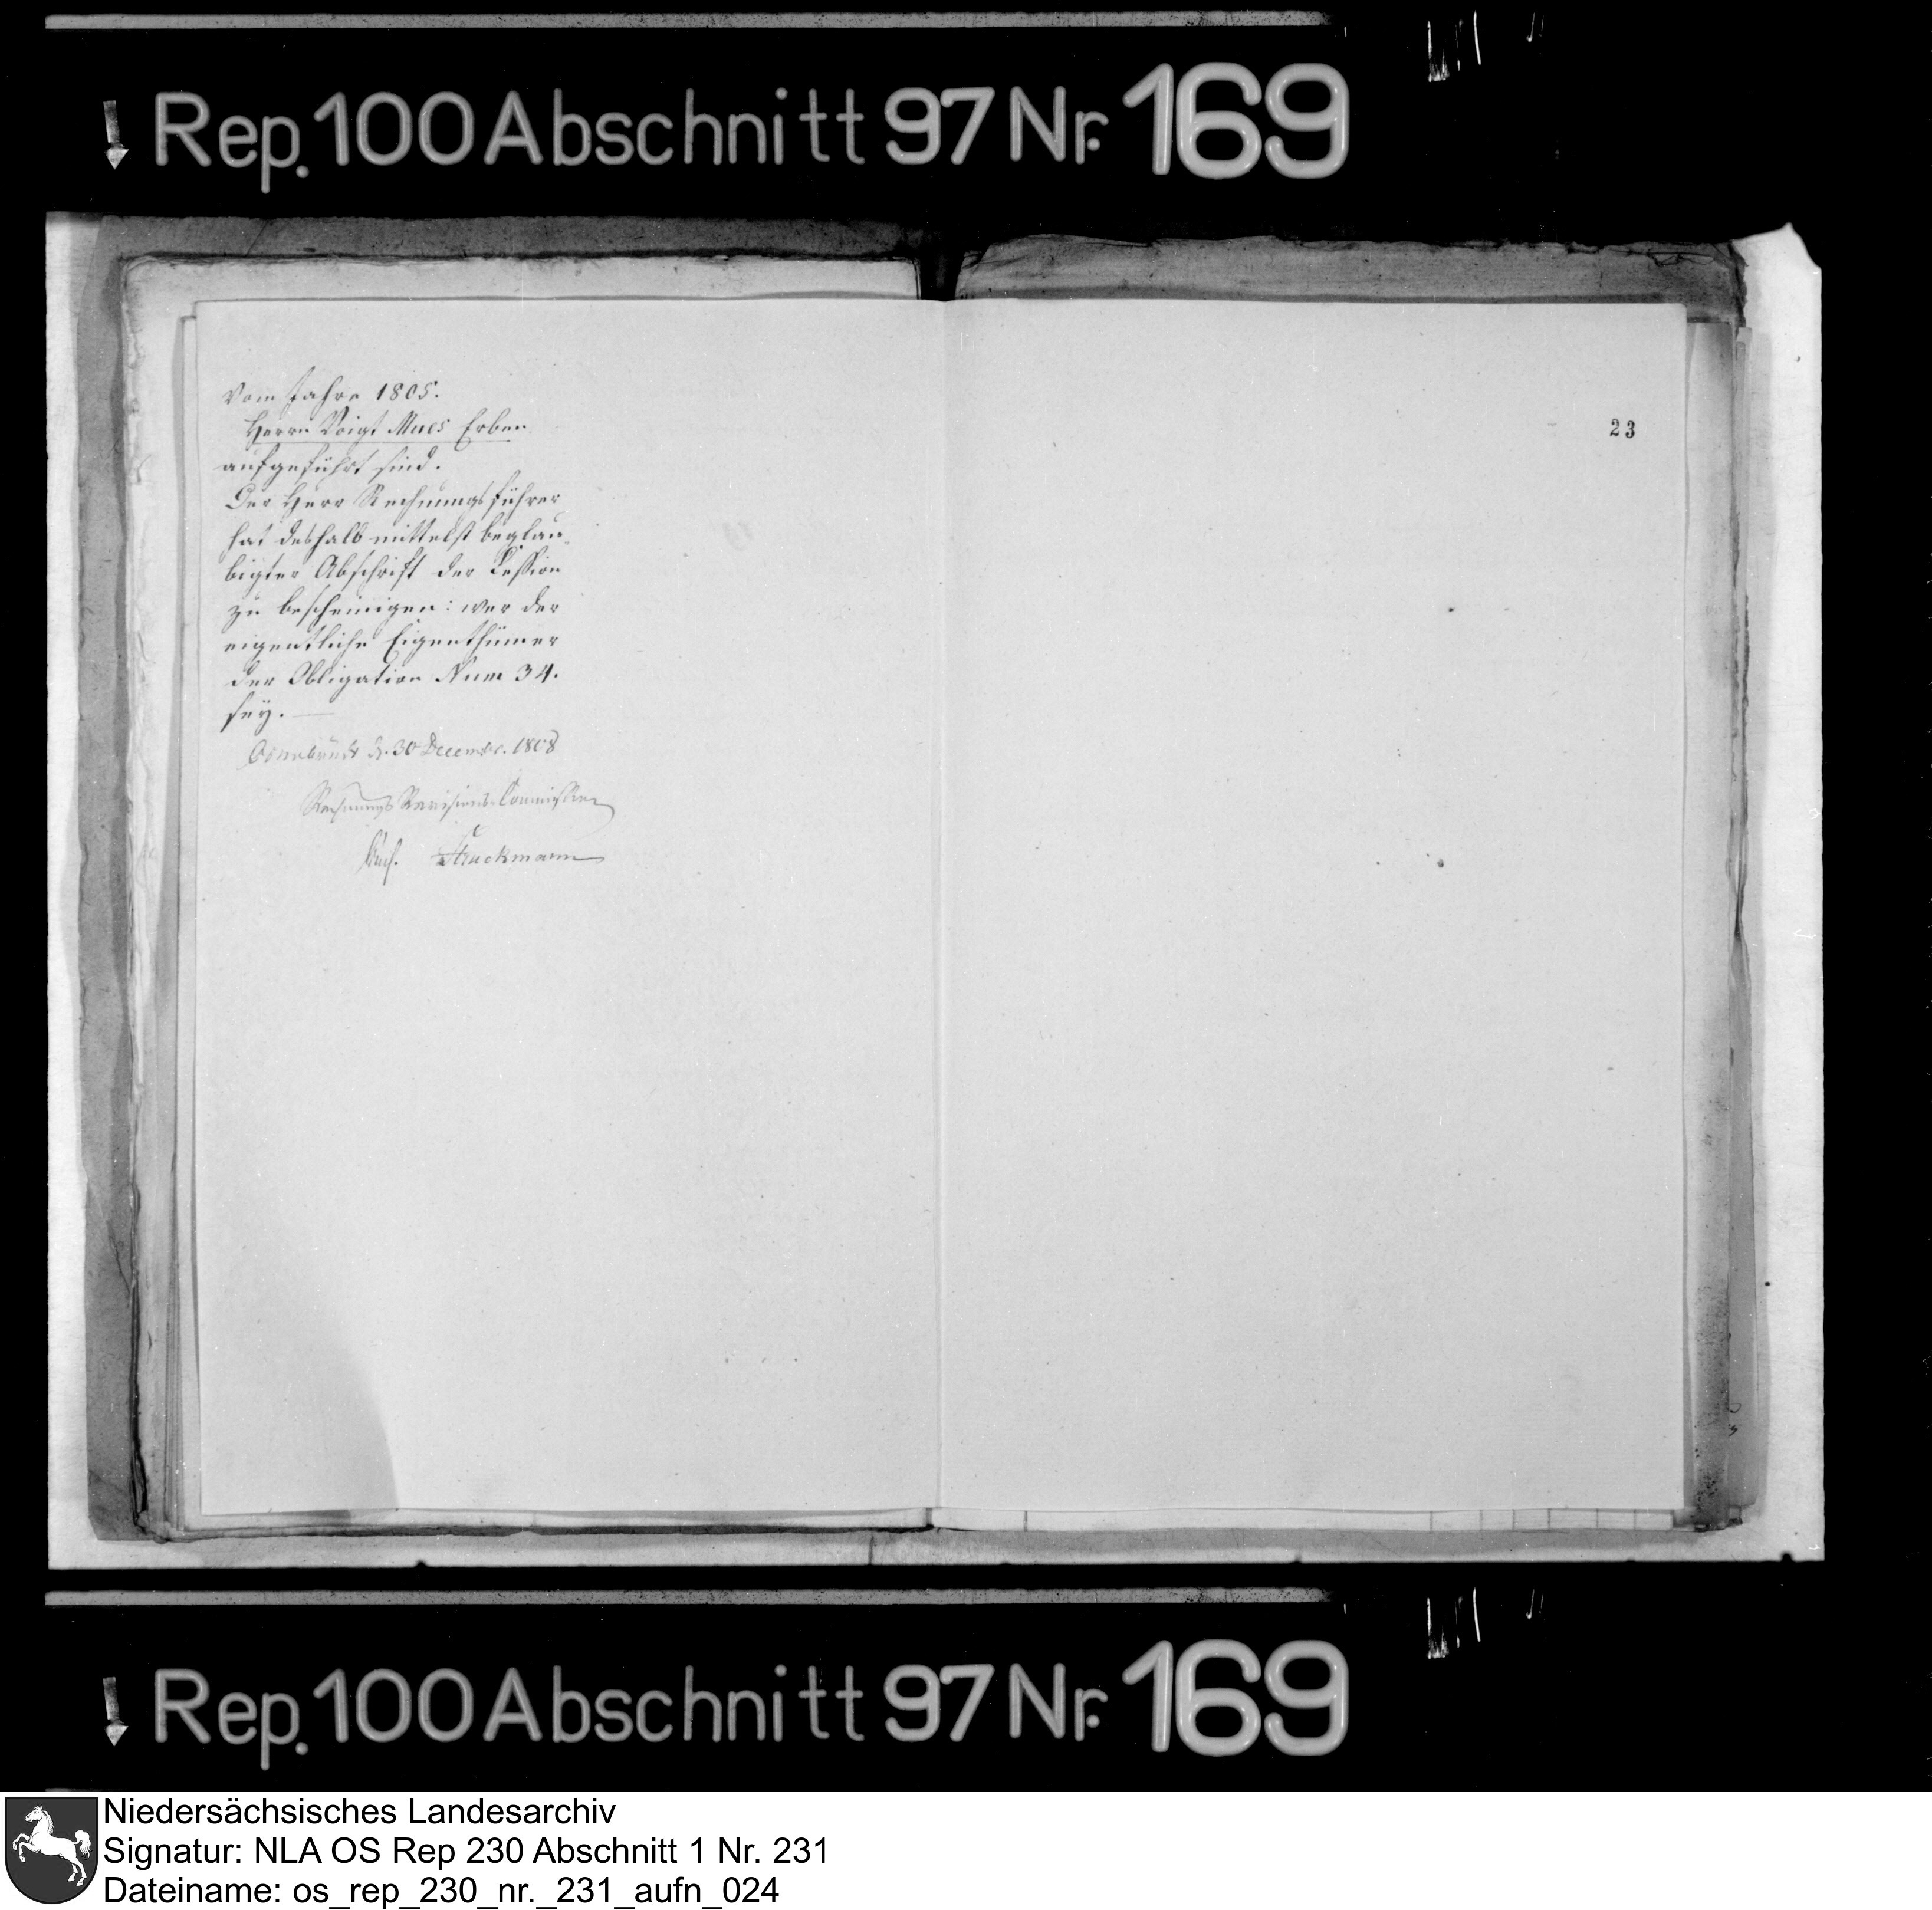 Rep. 100 Abschnitt 97 Nr. 169
vom Jahre 1805.
Herrn Voigt Mues Erben
aufgeführt sind.
Der Herr Rechnungsführer
hat deshalb mittelst beglau-
bigter Abschrift der Cession
zu bescheinigen: wer der
eigentliche Eigenthümer
der Obligation Num 34.
sey. —
Osnabrück d. 30 Decembr. 1808
Rechnungs Revisions-Commission
Struckmann
23
Rep. 100 Abschnitt 97 Nr. 169
Niedersächsisches Landesarchiv
Signatur: NLA OS Rep 230 Abschnitt 1 Nr. 231
Dateiname: os_rep_230_nr._231_aufn_024